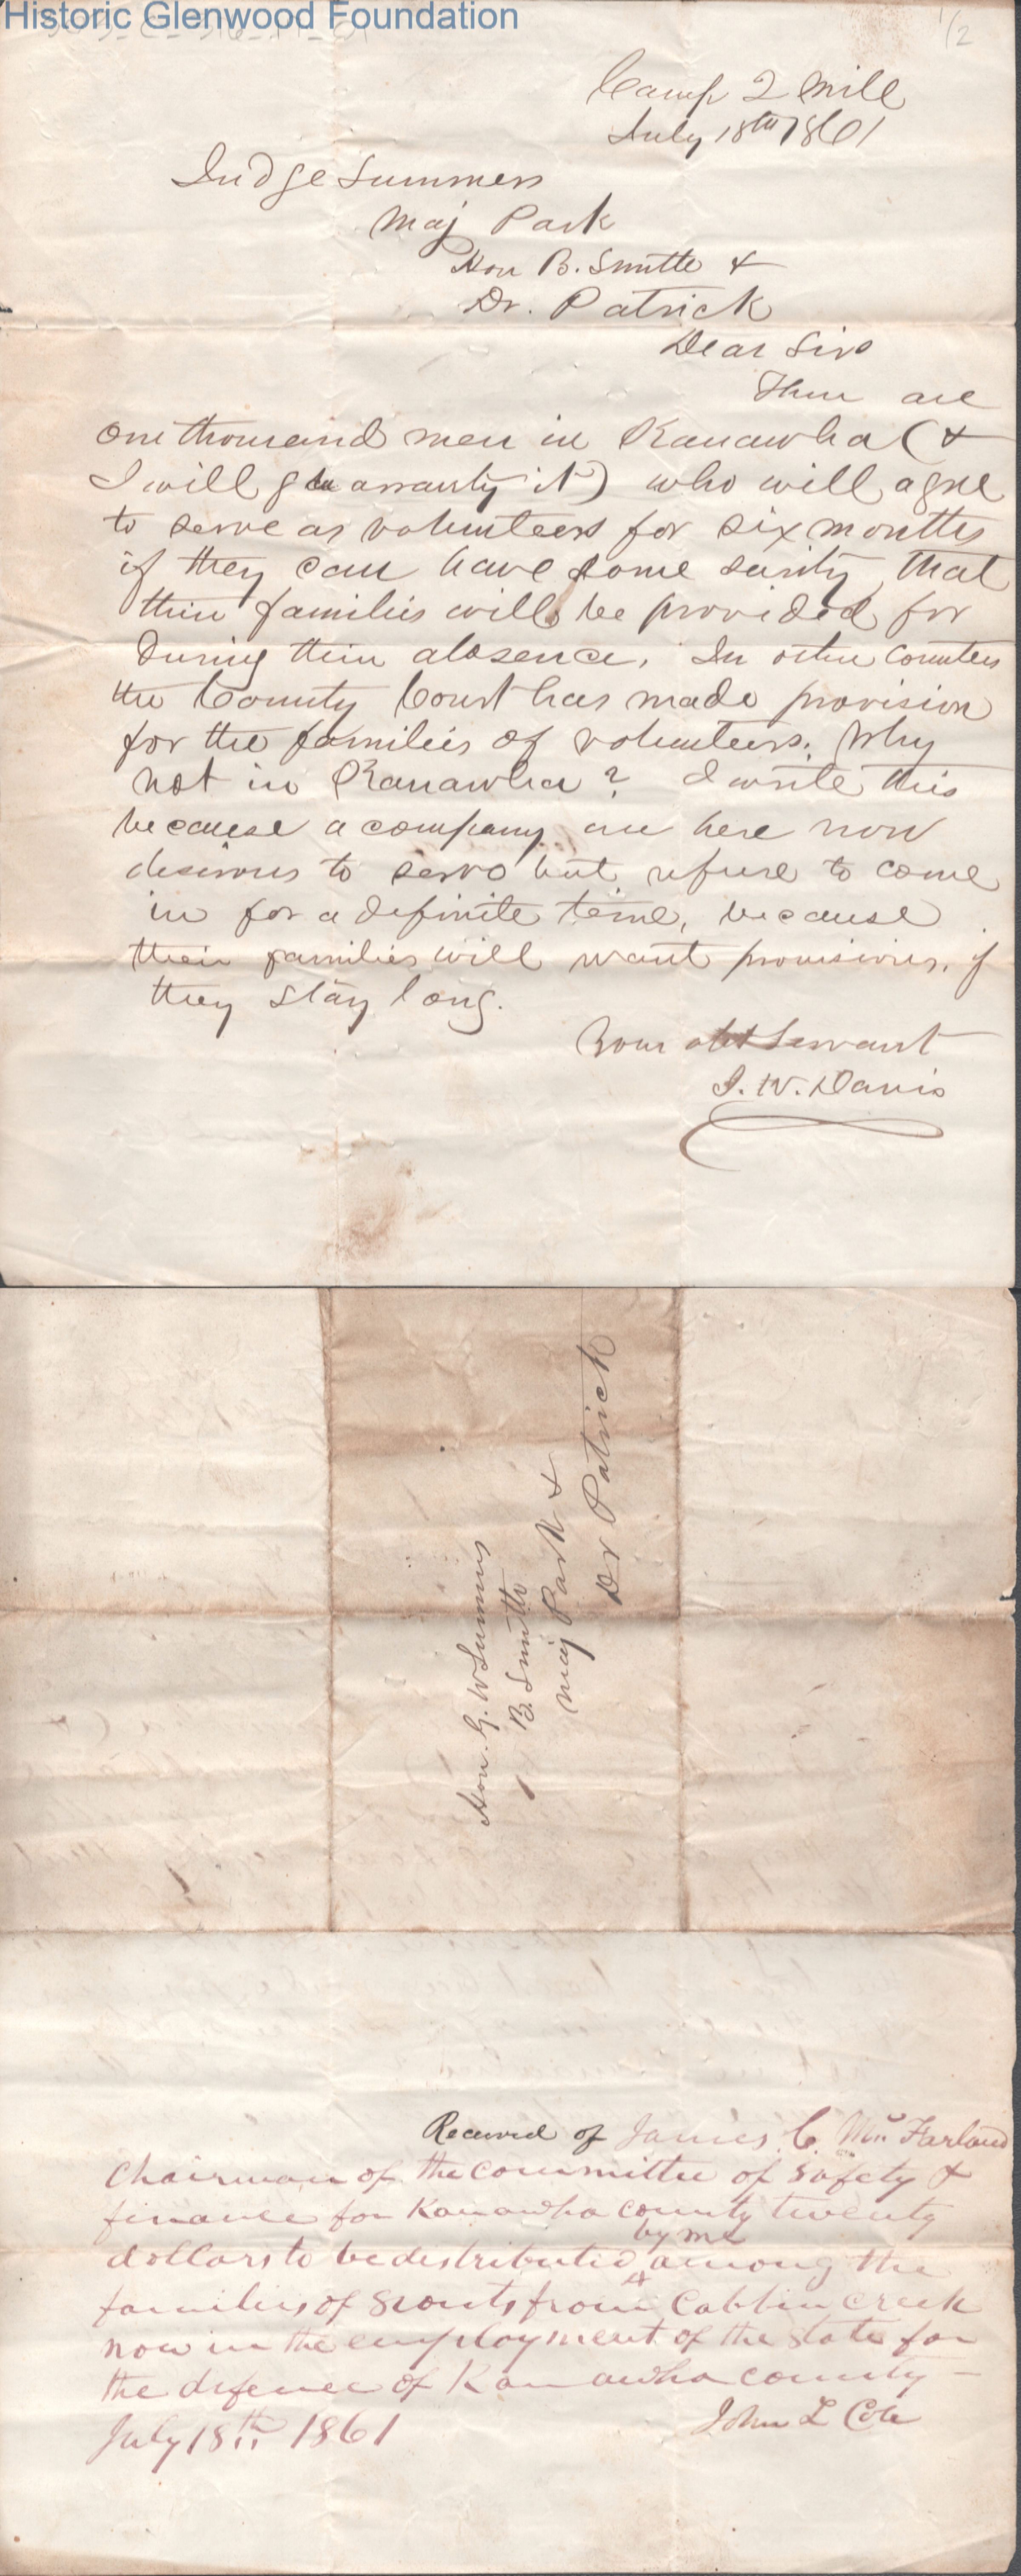 Historic Glenwood Foundation
1/2
Camp 2 Mile
July 18th 1861
Judge Summers
Maj Park
Hon B. Smith &
Dr. Patrick
Dear Sirs
There are
one thousand men in Kanawha (&
I will guarranty it) who will agree
to serve as volunteers for six months
if they can have some surity that
their families will be provided for
during their absence. In other Counties
the County Court has made provision
for the families of volunteers. Why
not in Kanawha? I write this
because a company are here now
desirous to serve but refuse to come
in for a definite time, because
their families will want provisions, if
they stay long.
Your obt Servant
J. W. Davis
Hon. G. W Summers
B. Smith
Maj Park &
Dr Patrick
Received of James C. McFarland
Chairman of the committee of safety &
finance for Kanawha county twenty
by me
dollars to be distributed among the
families of Scouts from Cabbin creek
now in the employment of the State for
the defence of Kanawha county –
July 18th 1861 John L Cole